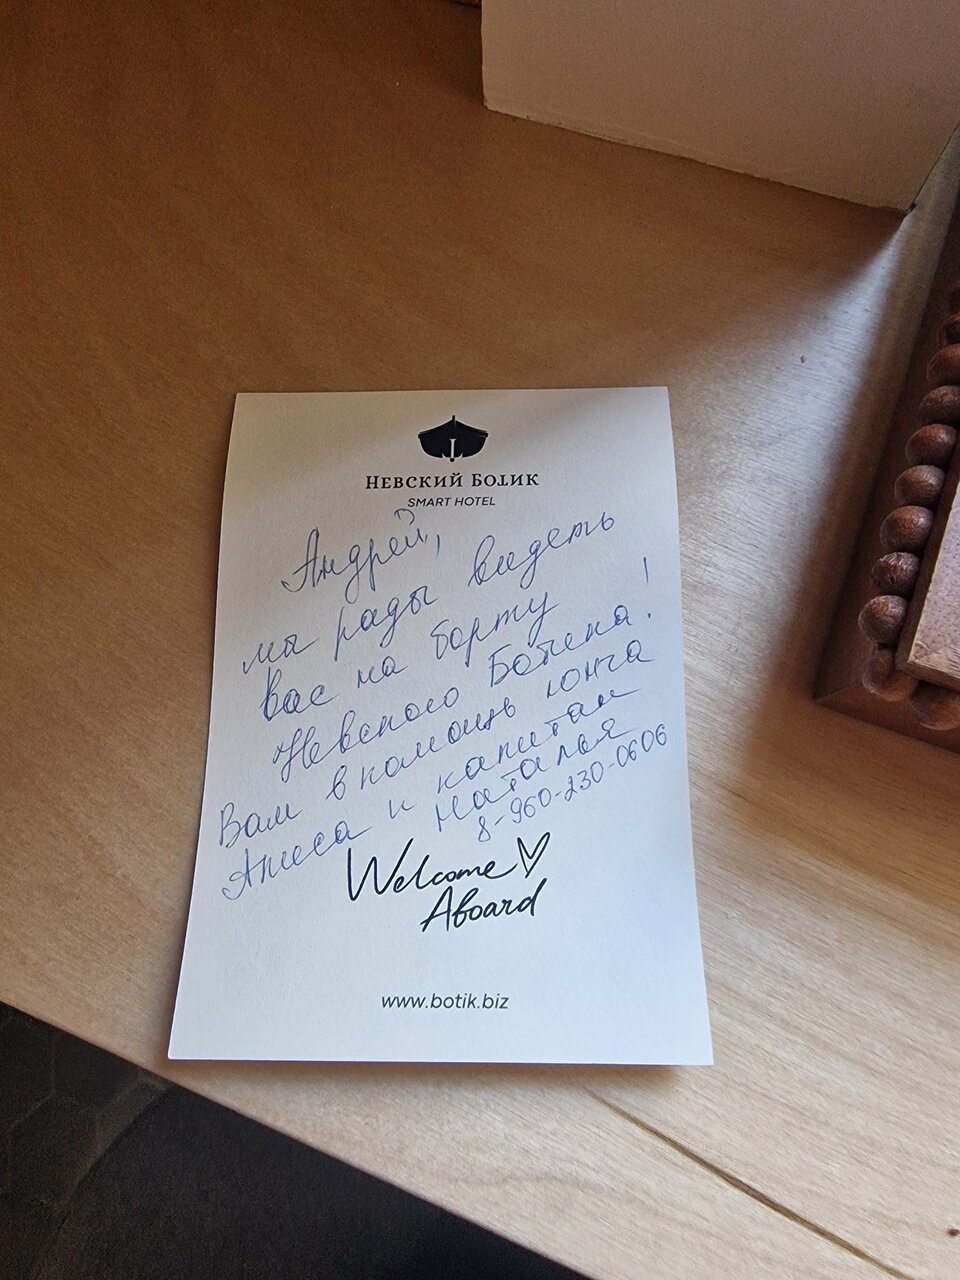 НЕВСКИЙ БОТИК
SMART HOTEL
Андрей,
мы рады видеть
Вас на борту
Невского Ботика!
Вам в помощь юнга
Алиса и капитан
Наталая
8-960-230-0606
Welcome
Aboard
www.botik.biz